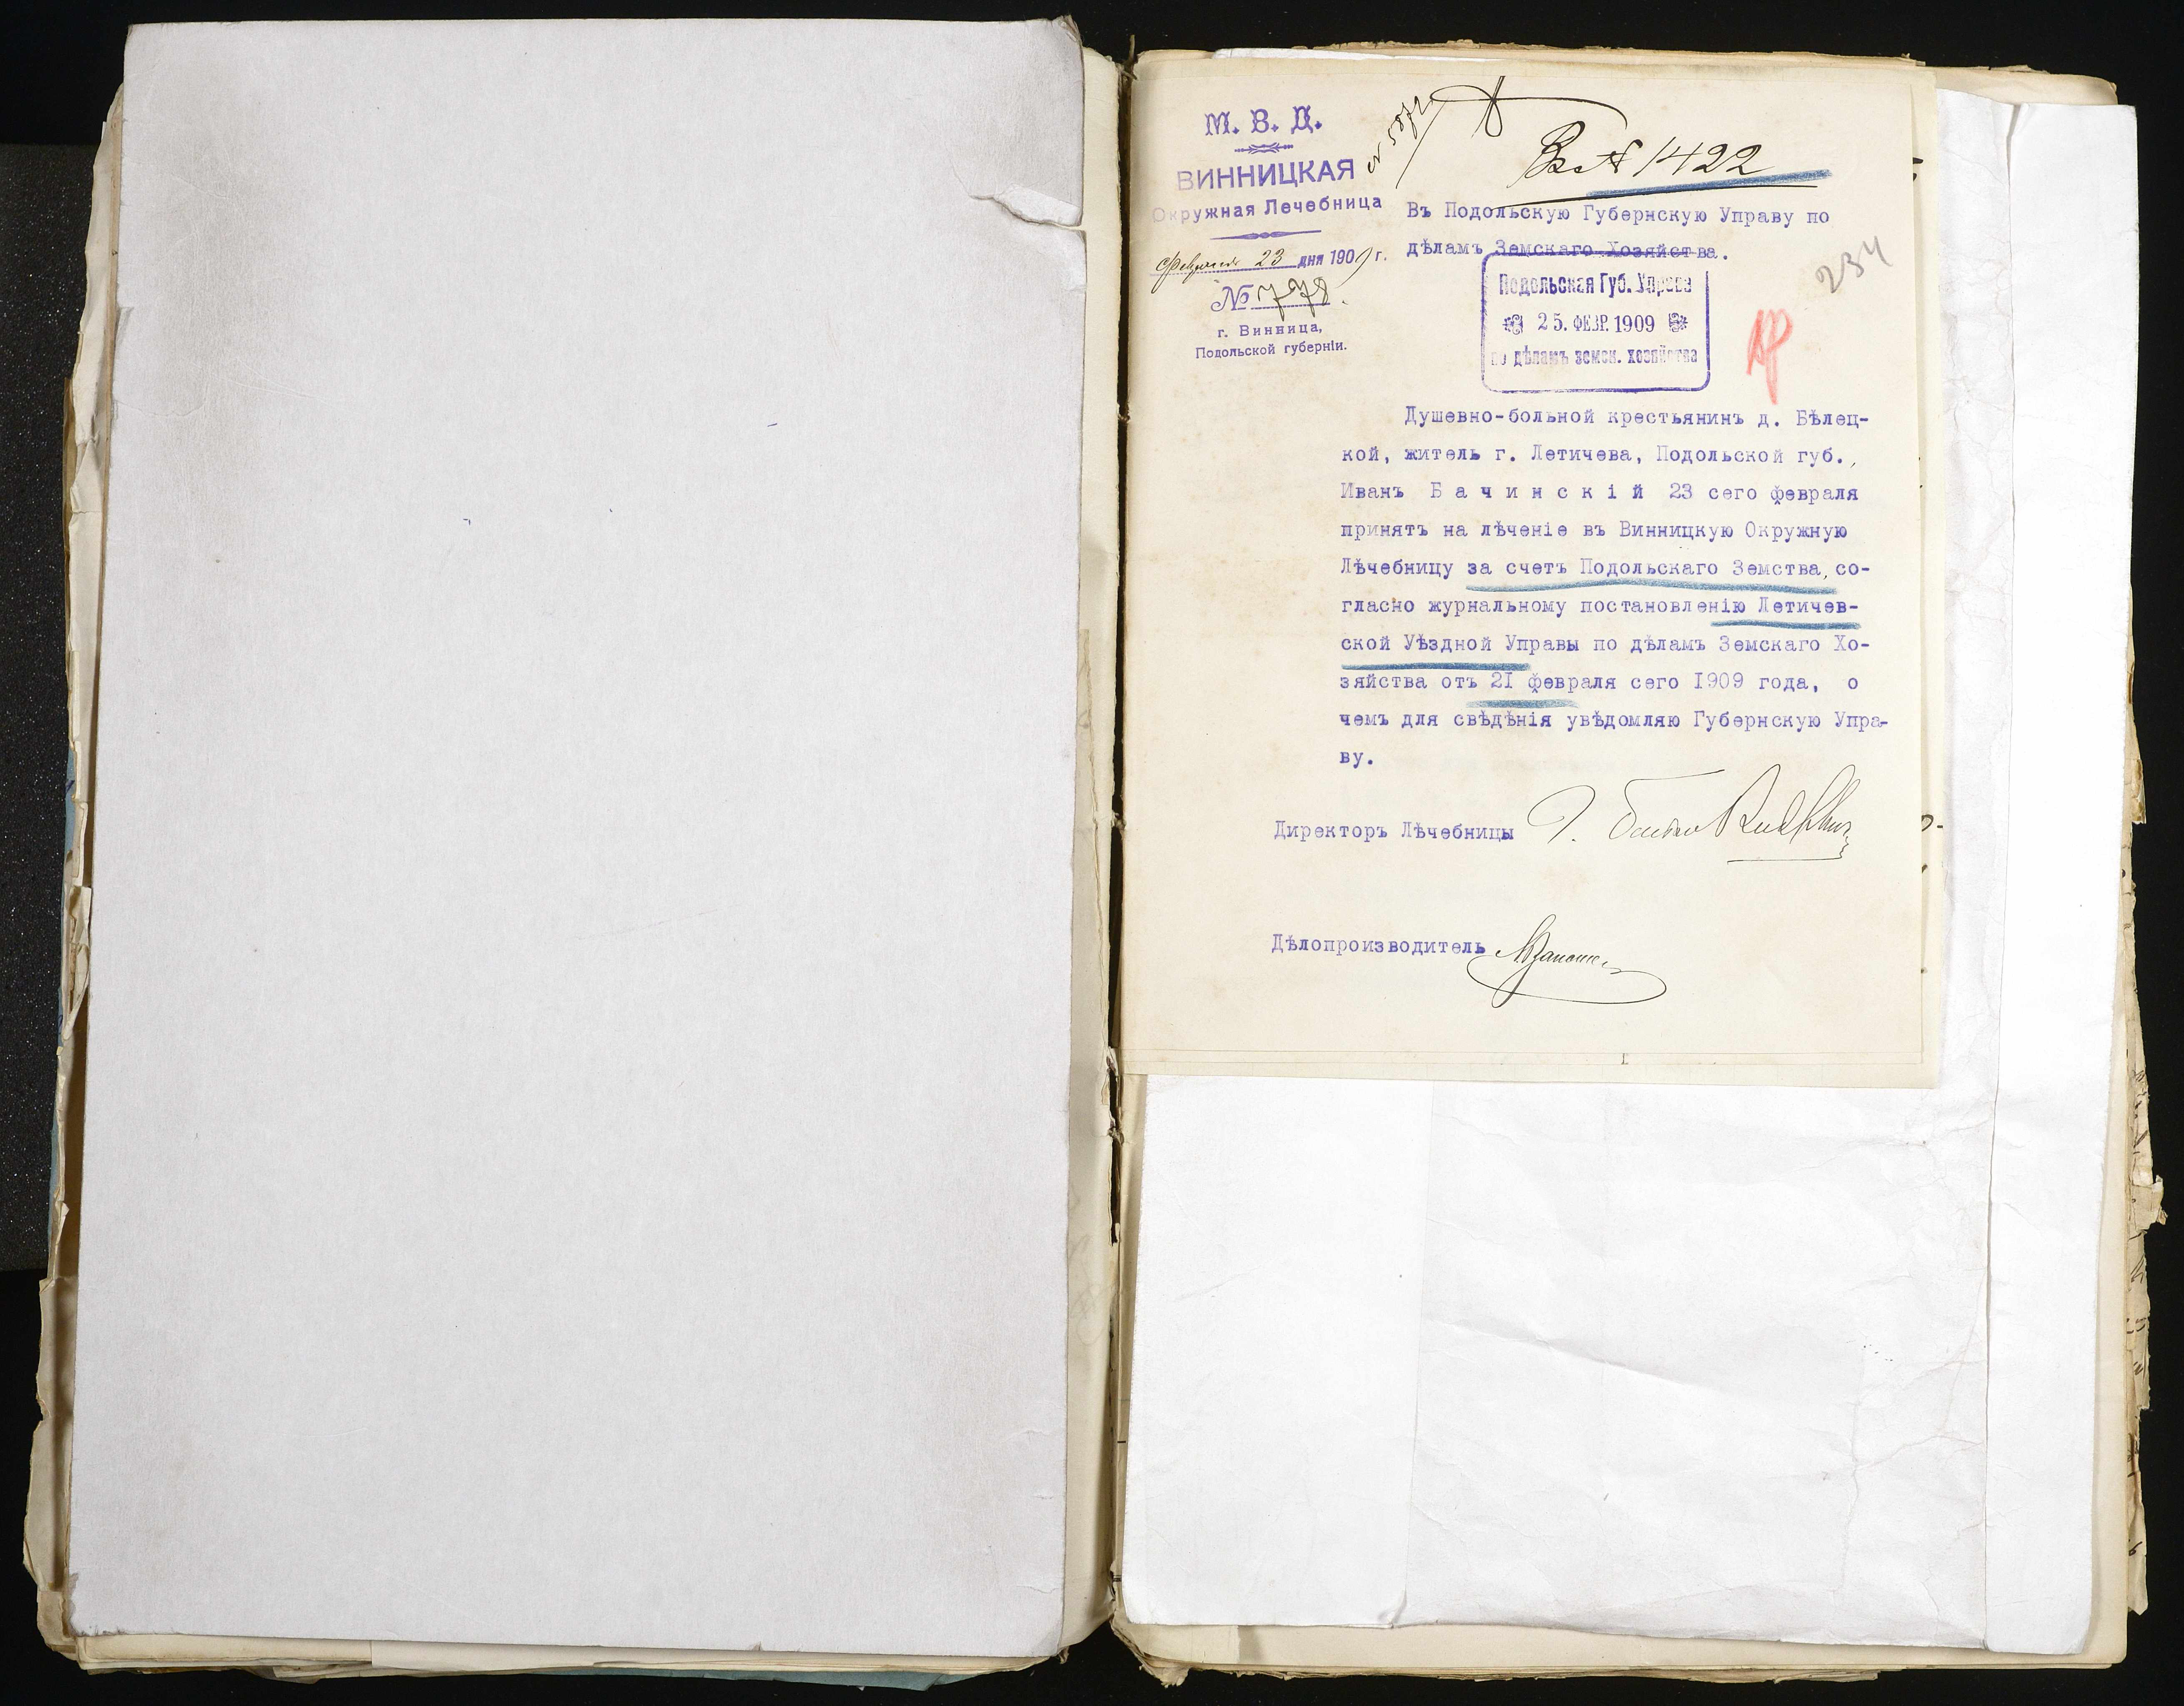 М. В. Д.
ВИННИЦКАЯ
Окружная Лечебница
февраля 23 дня 1909 г.
№ 778.
г. Винница,
Подольской губерніи.
1422
Въ Подольскую Губернскую Управу по
дѣламъ Земскаго Хозяйства.
234
Подольская Губ. Управа
25. ФЕВР. 1909
по дѣламъ земск. хозяйства
Душевно-больной крестьянинъ д. Бѣлец-
кой, житель г. Летичева, Подольской губ.,
Иванъ Бачинскій 23 сего февраля
принятъ на лѣченіе въ Винницкую Окружную
Лѣчебницу за счетъ Подольскаго Земства, со-
гласно журнальному постановленію Летичев-
ской Уѣздной Управы по дѣламъ Земскаго Хо-
зяйства отъ 21 февраля сего 1909 года, о
чемъ для свѣдѣнія увѣдомляю Губернскую Упра-
ву.
Директоръ Лѣчебницы
Дѣлопроизводитель